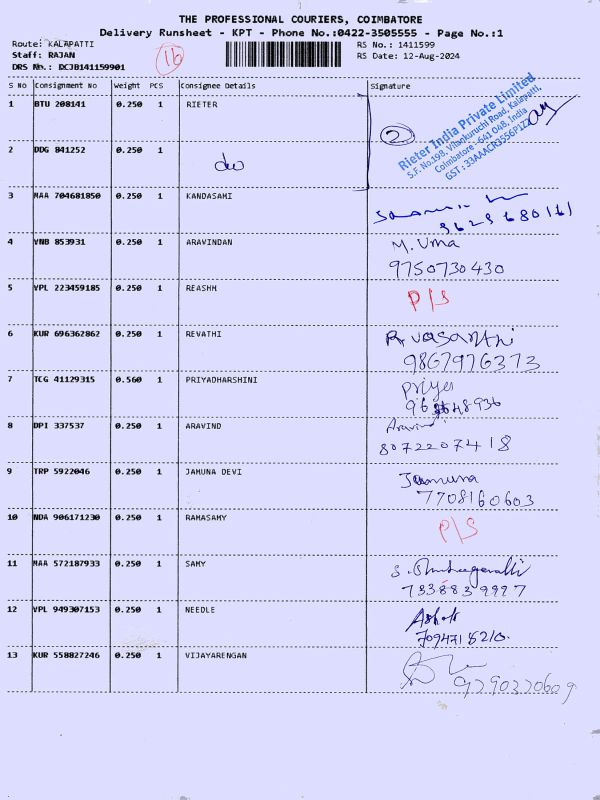 THE PROFESSIONAL COURIERS, COIMBATORE
Delivery Runsheet - KPT - Phone No.:0422-3505555 - Page No.:1
Route: KALAPATTI RS No.: 1411599
Staff: RAJAN 16 RS Date: 12-Aug-2024
DRS No.: DCJB141159901
S No Consignment No Weight PCS Consignee Details Signature
1 BTU 208141 0.250 1 RIETER
2
Rieter India Private Limited
S.F. No.198, Vilankuruchi Road, Kalapatti,
Coimbatore - 641 048, India
GST : 33AAACR3556P1ZZ
2 DDG 841252 0.250 1
do
3 MAA 704681850 0.250 1 KANDASAMI
4 VNB 853931 0.250 1 ARAVINDAN M. Uma
9750730430
5 VPL 223459185 0.250 1 REASHM P/S
6 KUR 696362862 0.250 1 REVATHI R vasanthi
9867976373
7 TCG 41129315 0.560 1 PRIYADHARSHINI Priya
8 DPI 337537 0.250 1 ARAVIND Aravind
8072207418
9 TRP 5922046 0.250 1 JAMUNA DEVI Jamuna
7708160603
10 NDA 906171230 0.250 1 RAMASAMY P/S
11 MAA 572187933 0.250 1 SAMY
7338839997
12 VPL 949307153 0.250 1 NEEDLE Ashok
13 KUR 558827246 0.250 1 VIJAYARENGAN
9790370609